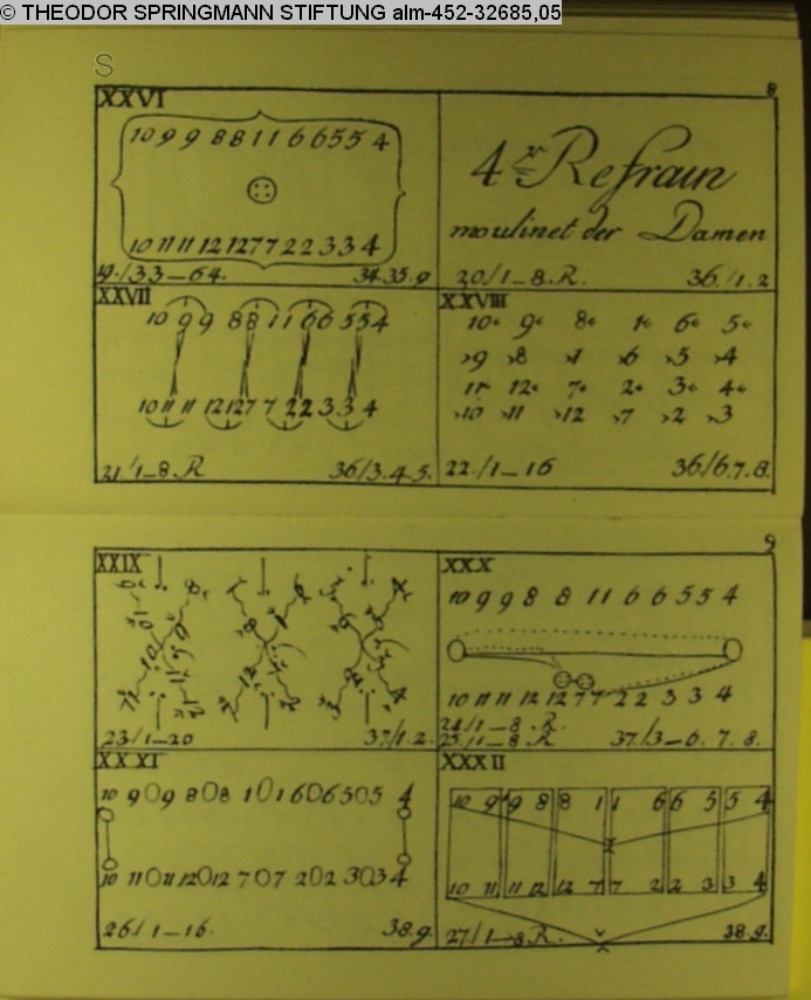 © THEODOR SPRINGMANN STIFTUNG alm-452-32685,05
S
8
XXVI
10 9 9 8 8 1 1 6 6 5 5 4
10 11 11 12 12 7 7 2 2 3 3 4
19./33-64. 34.35.9
4r Refrain
moulinet der Damen
20/1-8.R. 36./1.2
XXVII
10 9 9 8 8 1 1 6 6 5 5 4
10 11 11 12 12 7 7 2 2 3 3 4
21./1-8 R 36/3.4.5.
XXVIII
10 9 8 1 6 5
9 8 1 6 5 4
11 12 7 2 3 4
10 11 12 7 2 3
22./1-16 36/6.7.8.
9
XXIX
23/1-20 37/1.2.
XXX
10 9 9 8 8 1 1 6 6 5 5 4
10 11 11 12 12 7 7 2 2 3 3 4
24/1-8.R.
25./1-8 R 37/3-6. 7. 8.
XXXI
10 9 0 9 8 0 8 1 0 1 6 0 6 5 0 5 4
10 11 0 11 12 0 12 7 0 7 2 0 2 3 0 3 4
26/1-16. 38.9.
XXXII
10 9 9 8 8 1 1 6 6 5 5 4
10 11 11 12 12 7 7 2 2 3 3 4
27/1-8 R. 38.9.